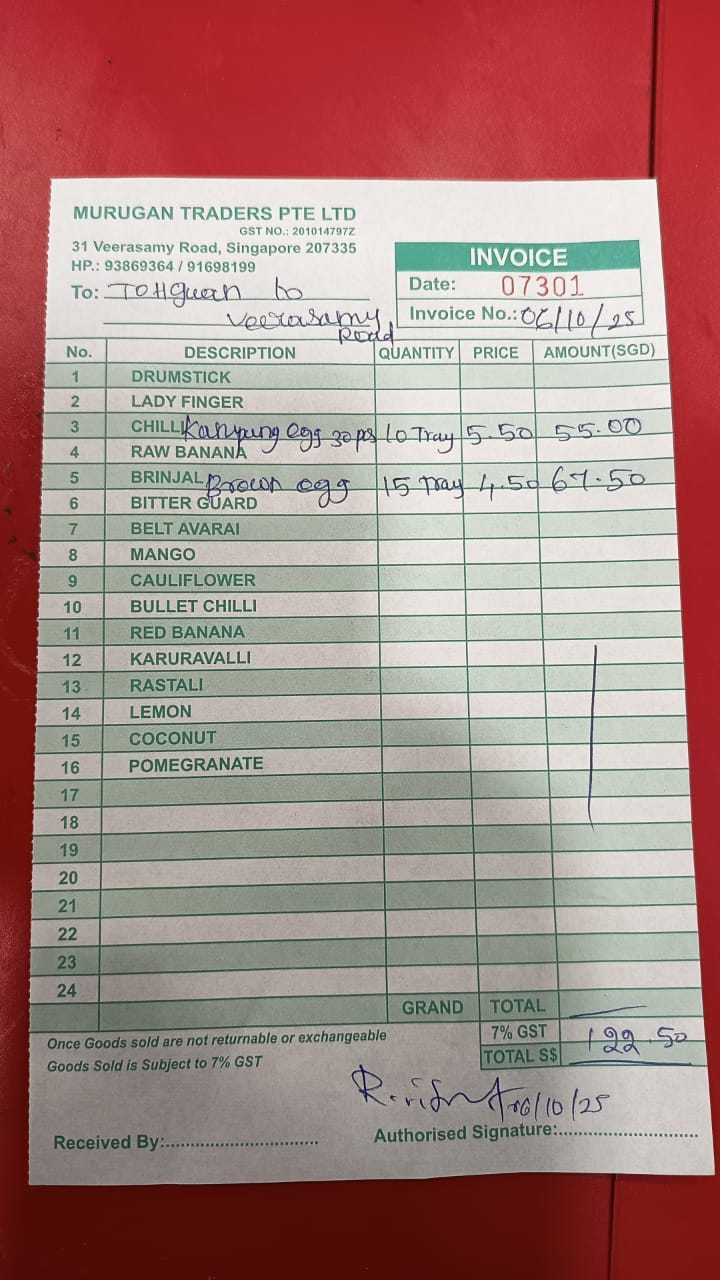 MURUGAN TRADERS PTE LTD
GST NO.: 201014797Z
31 Veerasamy Road, Singapore 207335
HP.: 93869364 / 91698199
To: TOHguan to
Veerasamy
Road
INVOICE
Date: 07301
Invoice No.: 06/10/25
No. DESCRIPTION QUANTITY PRICE AMOUNT(SGD)
1 DRUMSTICK
2 LADY FINGER
3 CHILLI Kampung egg 30ps 10 Tray 5.50 55.00
4 RAW BANANA
5 BRINJAL Brown egg 15 Tray 4.50 67.50
6 BITTER GUARD
7 BELT AVARAI
8 MANGO
9 CAULIFLOWER
10 BULLET CHILLI
11 RED BANANA
12 KARURAVALLI
13 RASTALI
14 LEMON
15 COCONUT
16 POMEGRANATE
17
18
19
20
21
22
23
24
GRAND TOTAL
Once Goods sold are not returnable or exchangeable
Goods Sold is Subject to 7% GST
7% GST
TOTAL S$ 122.50
06/10/25
Received By:
Authorised Signature: